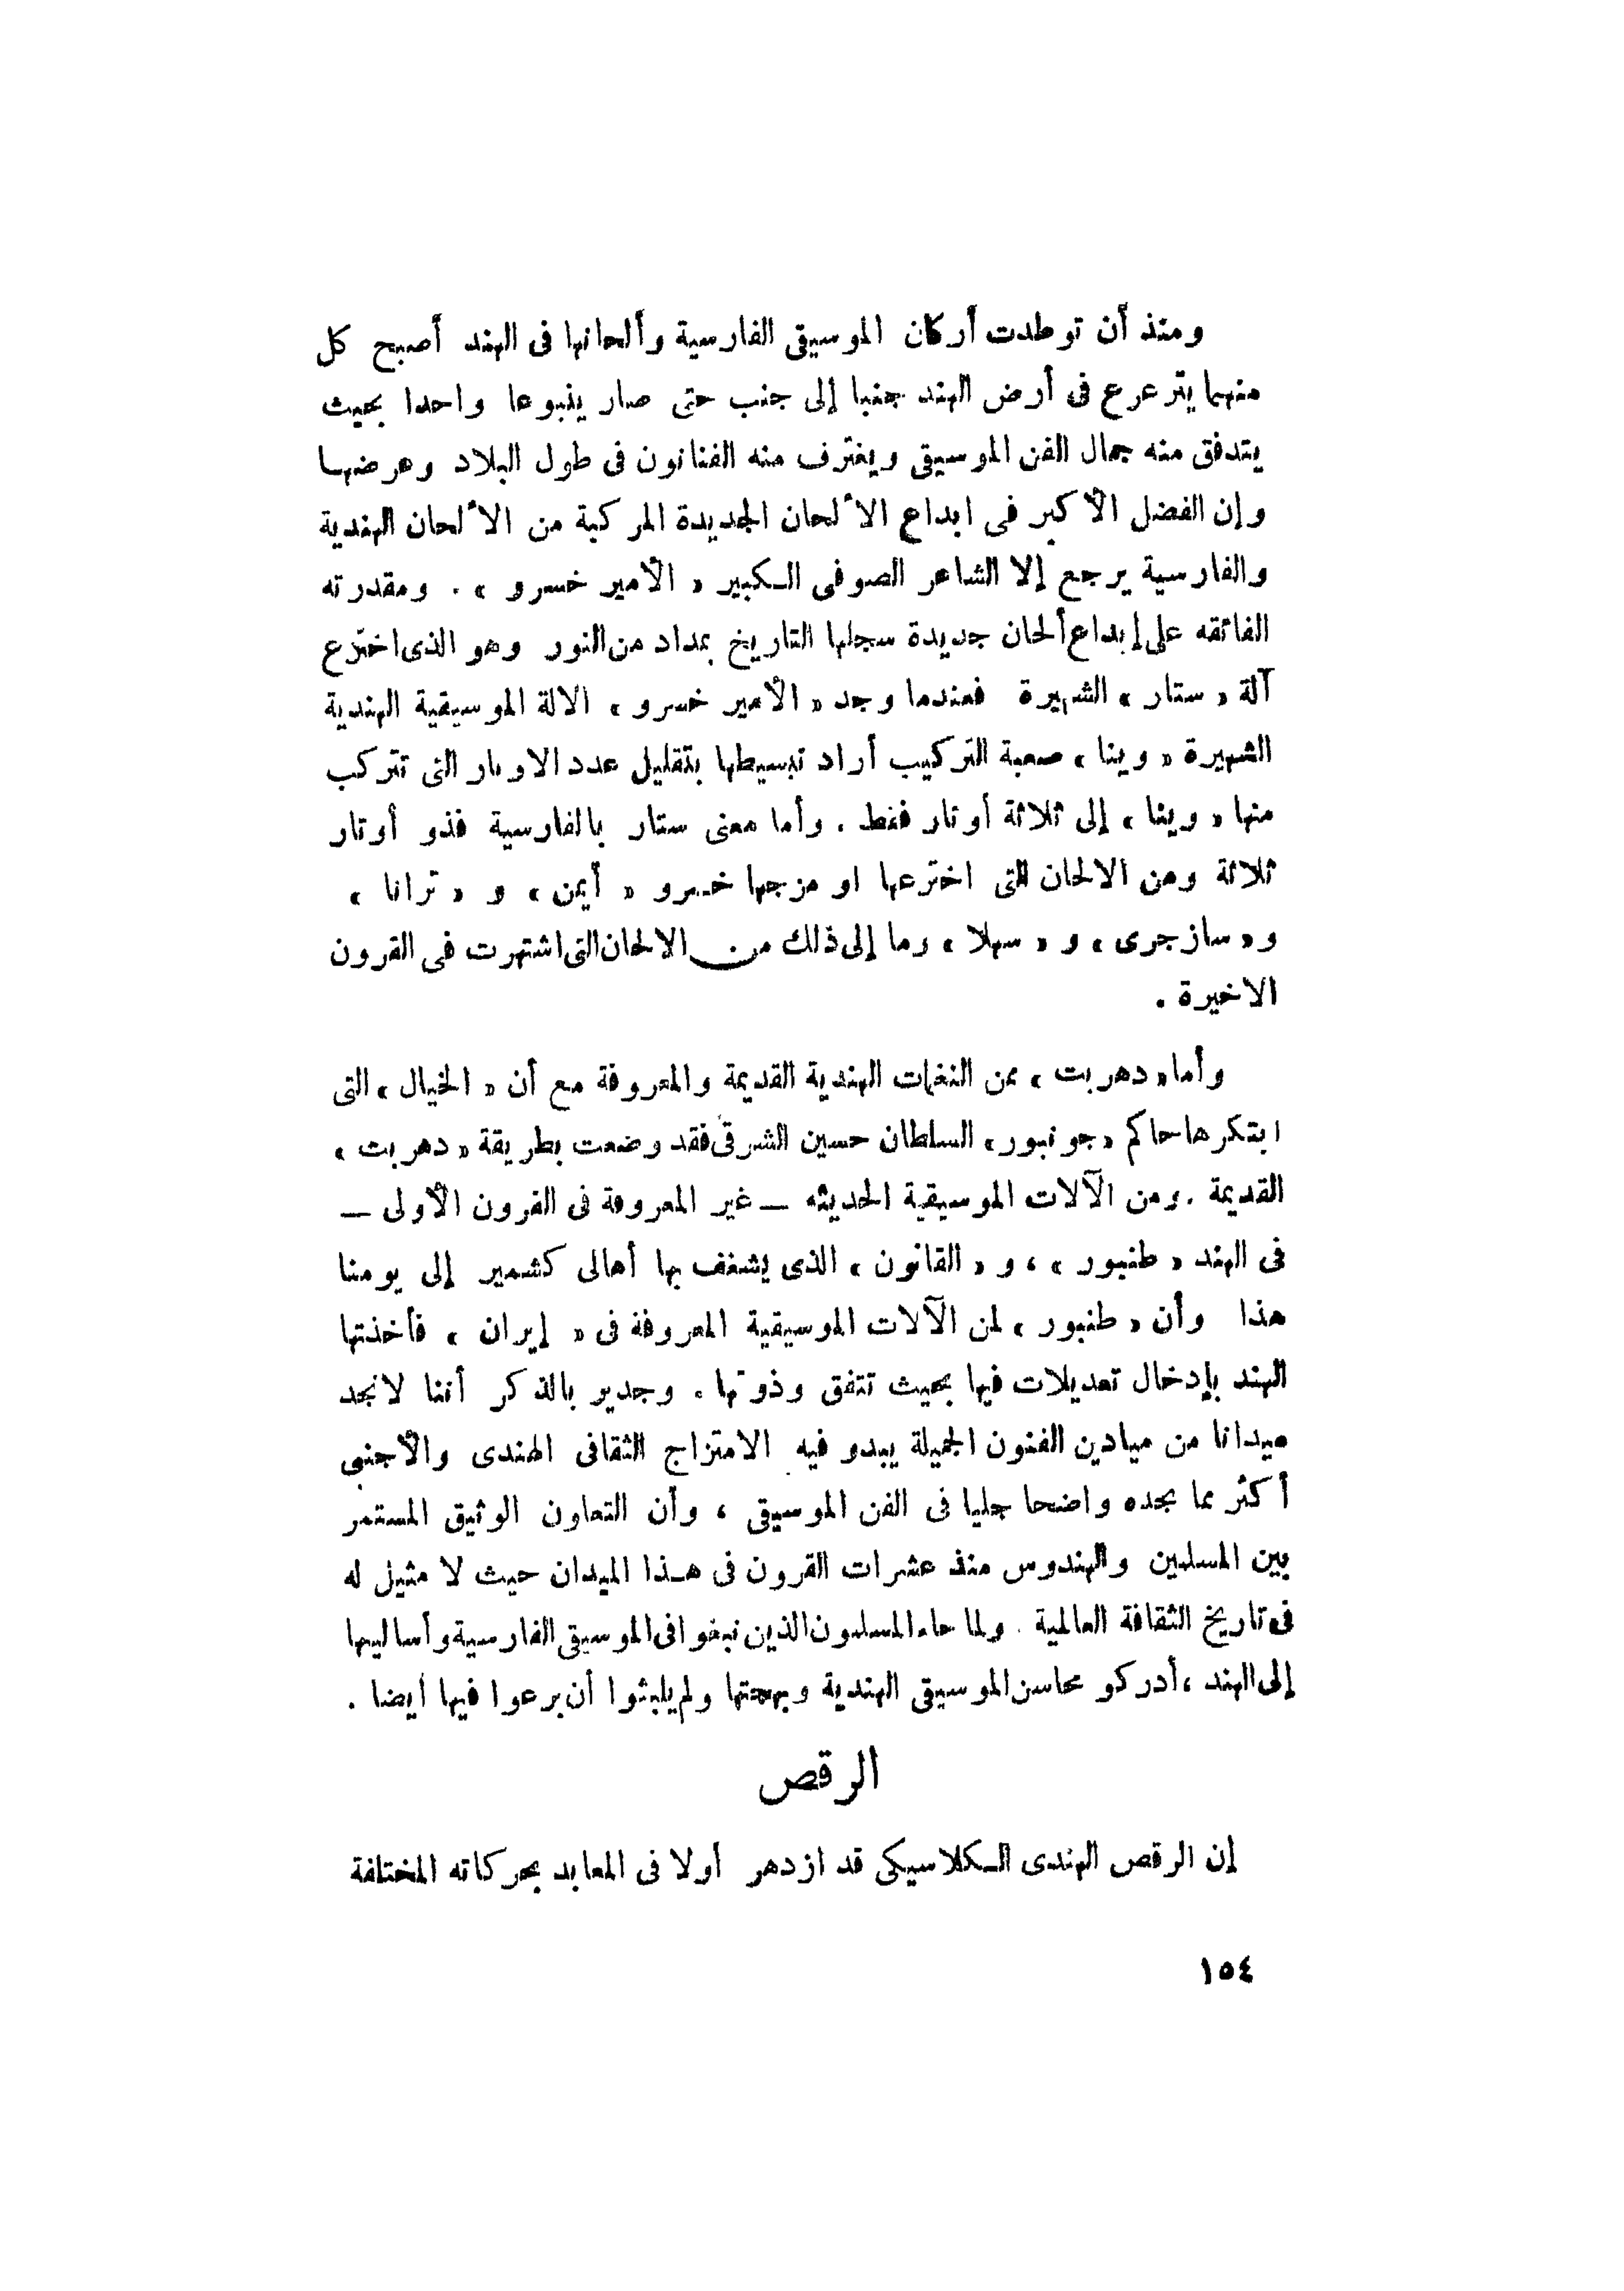 ومنذ أن توطدت أركان الموسيقى الفارسية وألحانها فى الهند أصبح كل
منهما يترعرع فى أرض الهند جنبا إلى جنب حتى صار ينبوعا واحدا بحيث
يتدفق منه جمال الفن الموسيقى ويغترف منه الفنانون فى طول البلاد وعرضها
وإن الفضل الأكبر فى ابداع الألحان الجديدة المركبة من الألحان الهندية
والفارسية يرجع إلا الشاعر الصوفى الكبير « الأمير خسرو » . ومقدرته
الفائقه على إبداع ألحان جديدة سجلها التاريخ بمداد من النور وهو الذى اخترع
آلة « ستار » الشهيرة فعندما وجد « الأمير خسرو » الالة الموسيقية الهندية
الشهيرة « وينا » صعبة التركيب أراد تبسيطها بتقليل عدد الاوتار التى تتركب
منها « وينا » إلى ثلاثة أوتار فقط . وأما معنى ستار بالفارسية فذو أوتار
ثلاثة ومن الالحان التى اخترعها او مزجها خسرو « أيمن » و « ترانا »
و« سازجرى » و « سهلا » وما إلى ذلك من الالحان التى اشتهرت فى القرون
الاخيرة .
وأما « دهربت » من النغمات الهندية القديمة والمعروفة مع أن « الخيال » التى
ابتكرها حاكم « جونبور » السلطان حسين الشرقى فقد وضعت بطريقة « دهربت »
القديمة . ومن الآلات الموسيقية الحديثه — غير المعروفة فى القرون الأولى —
فى الهند « طنبور » ، و « القانون » الذى يشغف بها أهالى كشمير إلى يومنا
هذا وأن « طنبور » لمن الآلات الموسيقية المعروفة فى « إيران » فأخذتها
الهند بإدخال تعديلات فيها بحيث تتفق وذوقها . وجدير بالذكر أننا لانجد
ميدانا من ميادين الفنون الجميلة يبدو فيه الامتزاج الثقافى الهندى والأجنبى
أكثر مما نجده واضحا جليا فى الفن الموسيقى ، وأن التعاون الوثيق المستمر
بين المسلمين والهندوس منذ عشرات القرون فى هذا الميدان حيث لا مثيل له
فى تاريخ الثقافة العالمية . ولما جاء المسلمون الذين نبغوا فى الموسيقى الفارسية وأساليبها
إلى الهند ، أدركو محاسن الموسيقى الهندية وبهجتها ولم يلبثوا أن برعوا فيها أيضا .
الرقص
إن الرقص الهندى الكلاسيكى قد ازدهر أولا فى المعابد بحركاته المختلفة
١٥٤